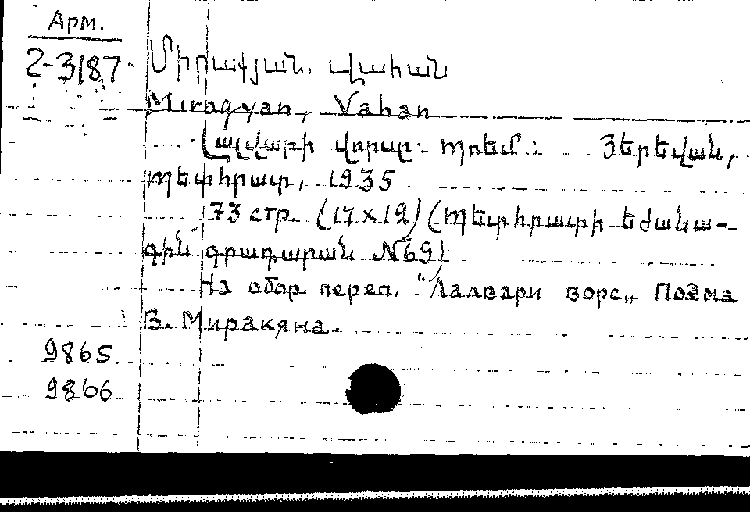 Арм.
2-3187
Միրաքյան, Վահան
Miraqyan, Vahan
Լալվարի վորսը. պոեմ: Յերեվան,
Պետհրատ, 1935
73 стр. (17x12) (Պետհրատի եժանա-
գին գրադարան №69)
На обор. переп. "Лалвари ворс„ Поэма
В. Миракяна.
9865
9866